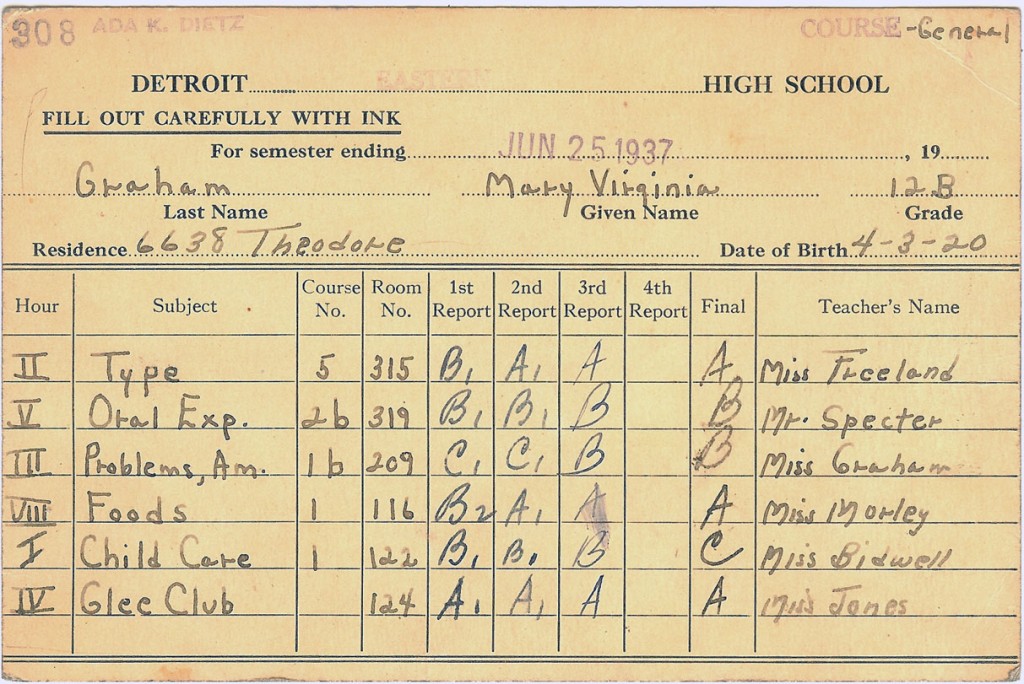 308 ADA K. DIETZ COURSE-General
DETROIT EASTERN HIGH SCHOOL
FILL OUT CAREFULLY WITH INK
For semester ending JUN 25 1937, 19
Graham Mary Virginia 12B
Last Name Given Name Grade
Residence 6638 Theodore Date of Birth 4-3-20
Hour Subject Course No. Room No. 1st Report 2nd Report 3rd Report 4th Report Final Teacher's Name
II Type 5 315 B1 A1 A A Miss Freeland
V Oral Exp. 2b 319 B1 B1 B B Mr. Specter
III Problems, Am. 1b 209 C1 C1 B B Miss Graham
VIII Foods 1 116 B2 A1 A A Miss Morley
I Child Care 1 122 B1 B1 B C Miss Bidwell
IV Glee Club 124 A1 A1 A A Miss Jones